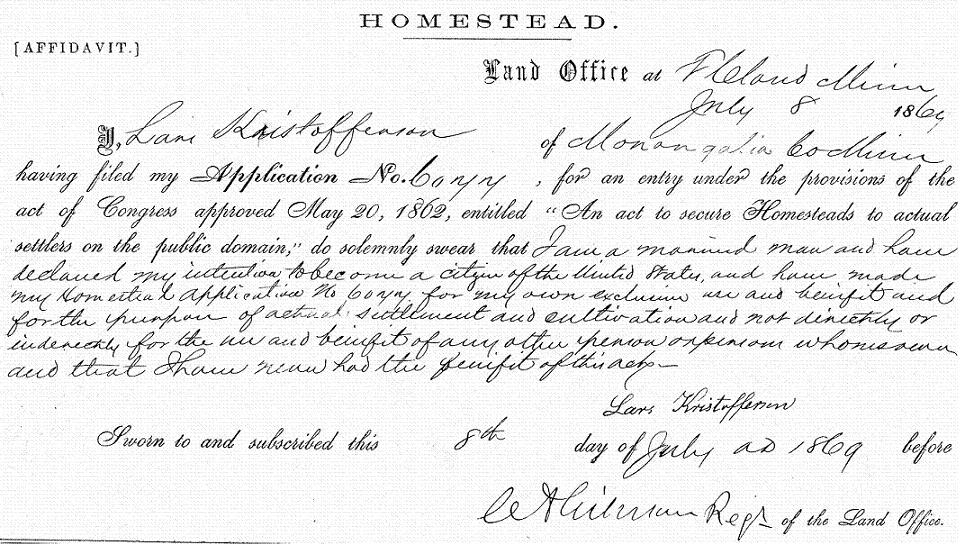 HOMESTEAD.
[AFFIDAVIT.]
Land Office at St Cloud Minn
July 8 1869
I, Lars Kristofferson of Monongalia Co Minn
having filed my Application No. , for an entry under the provisions of the
act of Congress approved May 20, 1862, entitled "An act to secure Homesteads to actual
settlers on the public domain," do solemnly swear that I am a married man and have
declared my intention to become a citizen of the United States, and have made
my Homestead Application No for my own exclusive use and benefit and
for the purpose of actual settlement and cultivation and not directly or
indirectly for the use and benefit of any other person or persons whomsoever
and that I have never had the benifit of this act—
Lars Kristofferson
Sworn to and subscribed this 8th day of July AD 1869 before
Regr of the Land Office.